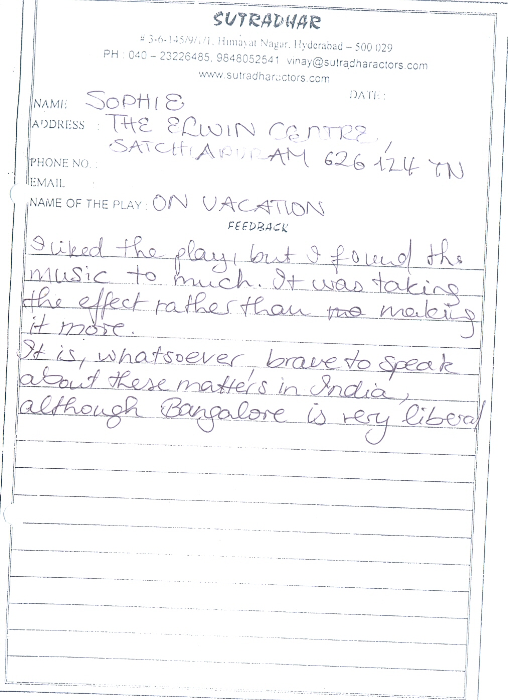 SUTRADHAR
# 3-6-145/9/7/1, Himayat Nagar, Hyderabad – 500 029
PH : 040 – 23226485, 9848052541 vinay@sutradharactors.com
www.sutradharactors.com
DATE :
NAME: SOPHIE
ADDRESS : THE ERWIN CENTRE,
626 124 TN
PHONE NO. :
EMAIL
NAME OF THE PLAY: ON VACATION
FEEDBACK
I liked the play, but I found the
music to much. It was taking
the effect rather than making
it more.
It is, whatsoever, brave to speak
about these matters in India,
although Bangalore is very liberal